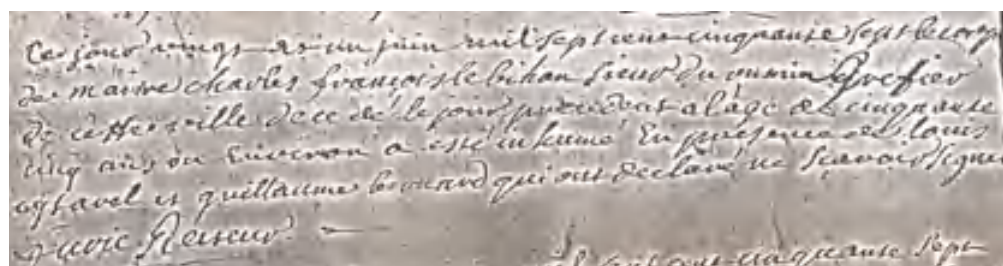 Ce jour vingt et un juin mil sept cens cinquante sept le corps
de maitre charles françois le bihan sieur du Greffier
de cette ville decedé le jour precedent a l'âge de cinquante
cinq ans ou Environ a esté inhumé En presence de louis
et guillaume qui ont declaré ne scavoir signer

cinquante sept